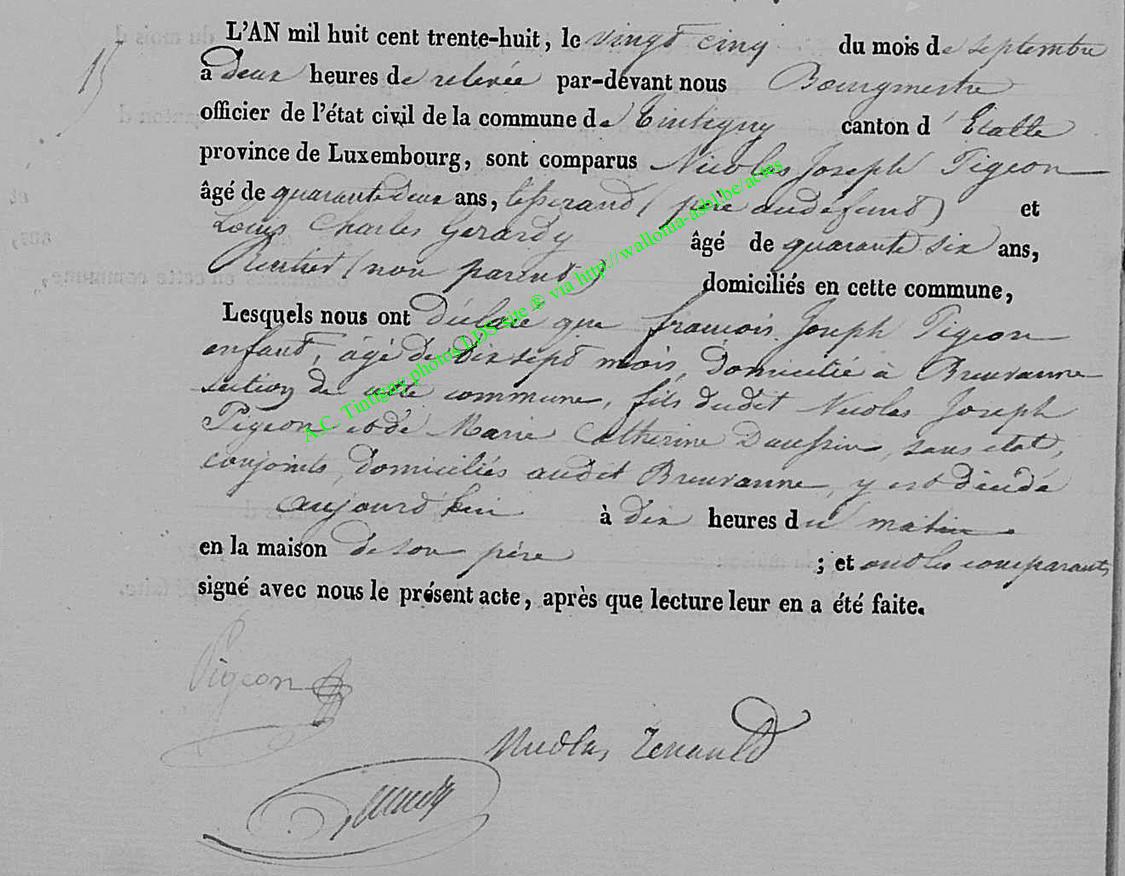 15
L'AN mil huit cent trente-huit, le vingt cinq du mois de septembre
à deux heures de relevée par-dévant nous Bourgmestre
officier de l'état civil de la commune de Tintigny canton d'Etalle
province de Luxembourg, sont comparus Nicolas Joseph Pigeon
âgé de quarante deux ans, tisserand (père au défunt) et
Louis Charles Gerardy âgé de quarante six ans,
Rentier (non parent) domiciliés en cette commune,
Lesquels nous ont déclaré que francois Joseph Pigeon
enfant, âgé de dix sept mois, domicilié à Breuvanne
section de cette commune, fils dudit Nicolas Joseph
Pigeon et de Marie Catherine Saussin, sans état,
conjoints, domiciliés audit Breuvanne, y est décédé
aujourd'hui à dix heures du matin
en la maison de son père ; et ont les comparants
signé avec nous le présent acte, après que lecture leur en a été faite.
A.C. Tintigny photos LDS site ® via http://wallonia-asbl.be/actes
Pigeon
Nicolas